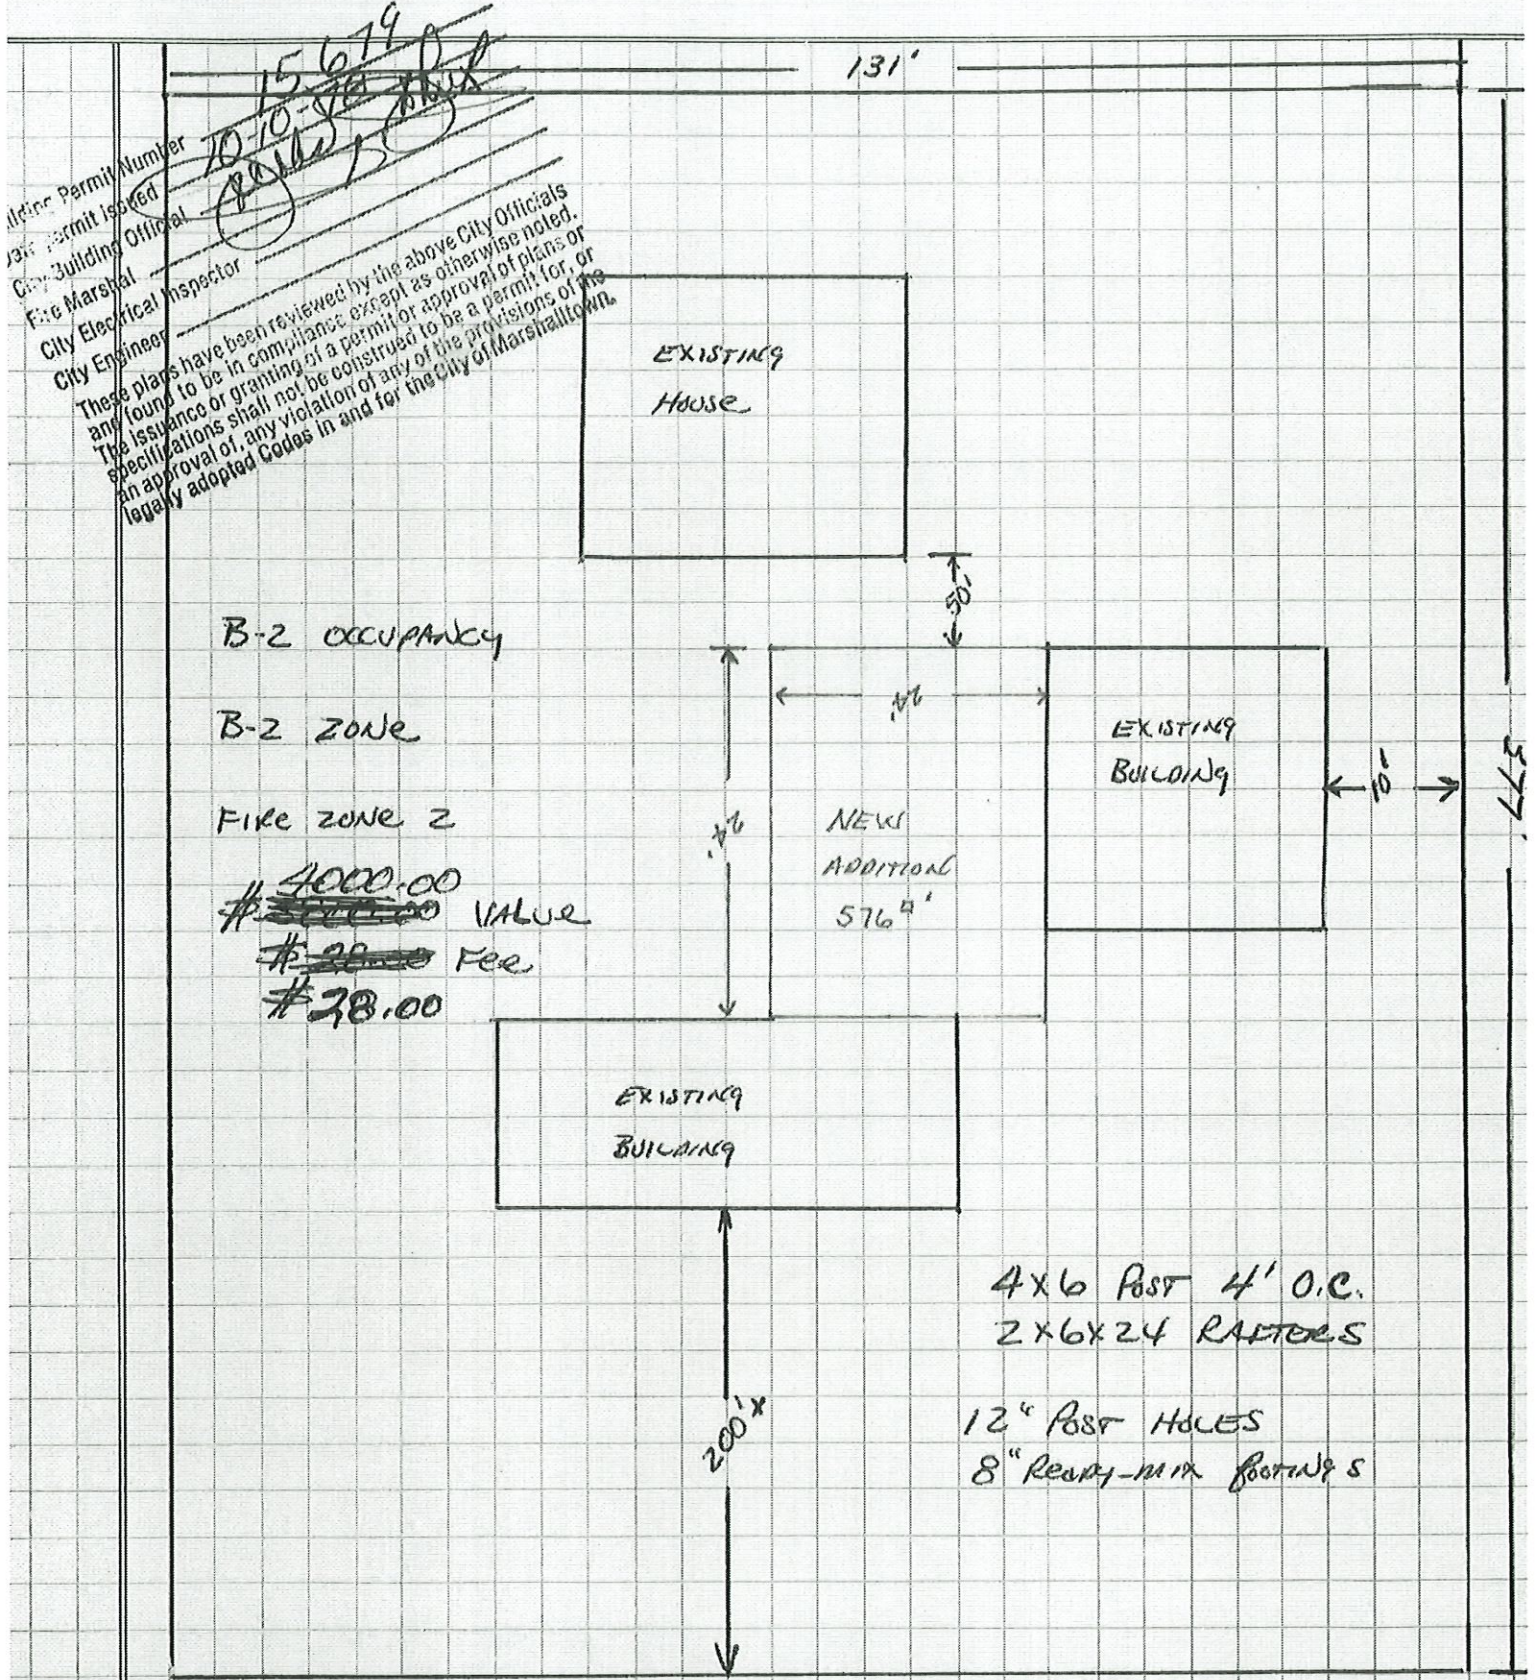 131'
15,679
10-10-
Building Permit Number
Date Permit Issued
City Building Official
Fire Marshal
City Electrical Inspector
City Engineer
These plans have been reviewed by the above City Officials
and found to be in compliance except as otherwise noted.
The issuance or granting of a permit or approval of plans or
specifications shall not be construed to be a permit for, or
an approval of, any violation of any of the provisions of the
legally adopted Codes in and for the City of Marshalltown.
EXISTING
HOUSE
50'
B-2 OCCUPANCY
24'
B-2 ZONE
EXISTING
BUILDING
10'
377'
FIRE ZONE 2
24'
NEW
ADDITION
576 □'
4000.00
# VALUE
# Fee
#28.00
EXISTING
BUILDING
4X6 POST 4' O.C.
2X6X24 RAFTORS
200'X
12" POST HOLES
8" READY-MIX FOOTINGS